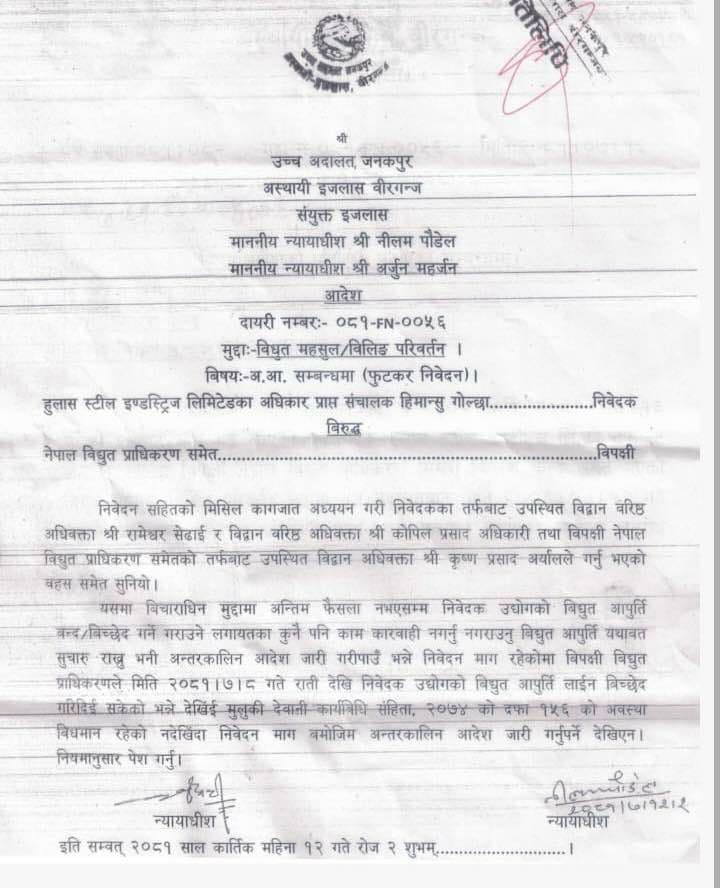 प्रतिलिपि
श्री
उच्च अदालत, जनकपुर
अस्थायी इजलास वीरगन्ज
संयुक्त इजलास
माननीय न्यायाधीश श्री नीलम पौडेल
माननीय न्यायाधीश श्री अर्जुन महर्जन
आदेश
दायरी नम्बरः- ०८१-FN-००५६
मुद्दाः-विधुत महसुल/विलिङ परिवर्तन ।
बिषयः-अ.आ. सम्बन्धमा (फुटकर निवेदन)।
हुलास स्टील इण्डस्ट्रिज लिमिटेडका अधिकार प्राप्त संचालक हिमान्सु गोल्छा......................निवेदक
बिरुद्ध
नेपाल विद्युत प्राधिकरण समेत................................................................................विपक्षी
निवेदन सहितको मिसिल कागजात अध्ययन गरी निवेदकका तर्फबाट उपस्थित विद्वान वरिष्ठ
अधिवक्ता श्री रामेश्वर सेढाई र विद्वान वरिष्ठ अधिवक्ता श्री कोपिल प्रसाद अधिकारी तथा विपक्षी नेपाल
विद्युत प्राधिकरण समेतको तर्फबाट उपस्थित विद्वान अधिवक्ता श्री कृष्ण प्रसाद अर्यालले गर्नु भएको
वहस समेत सुनियो।
यसमा विचाराधिन मुद्दामा अन्तिम फैसला नभएसम्म निवेदक उद्योगको बिधुत आपुर्ति
बन्द/बिच्छेद गर्ने गराउने लगायतका कुनै पनि काम कारवाही नगर्नु नगराउनु विद्युत आपुर्ति यथावत
सुचारु राख्नु भनी अन्तरकालिन आदेश जारी गरीपाउँ भन्ने निवेदन माग रहेकोमा बिपक्षी विद्युत
प्राधिकरणले मिति २०८१।७।८ गते राती देखि निवेदक उद्योगको विद्युत आपुर्ति लाईन बिच्छेद
गरिदिई सकेको भन्ने देखिंई मुलुकी देवानी कार्यविधि संहिता, २०७४ को दफा १५६ को अवस्था
बिधमान रहेको नदेखिंदा निवेदन माग बमोजिम अन्तरकालिन आदेश जारी गर्नुपर्ने देखिएन।
नियमानुसार पेश गर्नु।
न्यायाधीश न्यायाधीश
इति सम्वत् २०८१ साल कार्तिक महिना १२ गते रोज २ शुभम्......................।